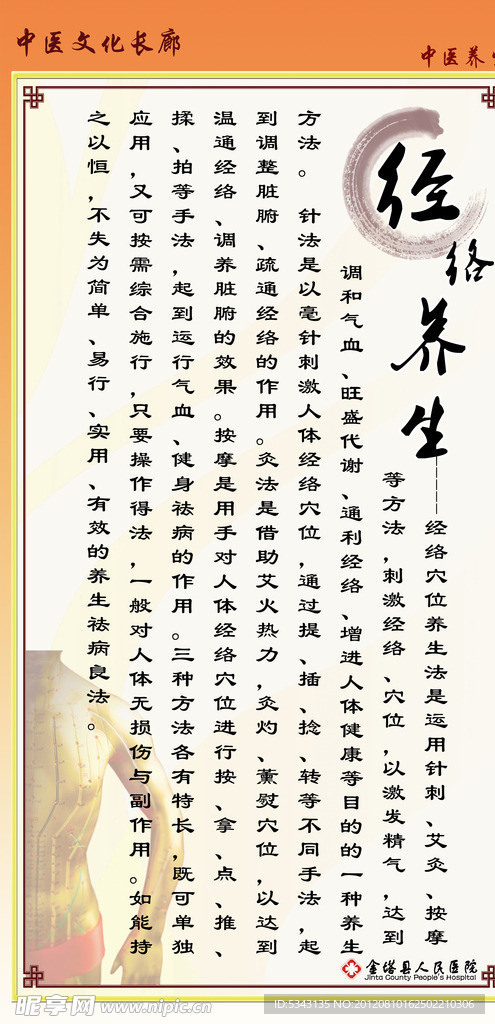 中医文化长廊
中医养生
经络养生
——经络穴位养生法是运用针刺、艾灸、按摩
等方法，刺激经络、穴位，以激发精气，达到
调和气血、旺盛代谢、通利经络、增进人体健康等目的的一种养生
方法。 针法是以毫针刺激人体经络穴位，通过提、插、捻、转等不同手法，起
到调整脏腑、疏通经络的作用。灸法是借助艾火热力，灸灼、薰熨穴位，以达到
温通经络、调养脏腑的效果。按摩是用手对人体经络穴位进行按、拿、点、推、
揉、拍等手法，起到运行气血、健身祛病的作用。三种方法各有特长，既可单独
应用，又可按需综合施行，只要操作得法，一般对人体无损伤与副作用。如能持
之以恒，不失为简单、易行、实用、有效的养生祛病良法。
金塔县人民医院
Jinta County People's Hospital
昵享网 www.nipic.cn
ID:5343135 NO:20120810162502210306